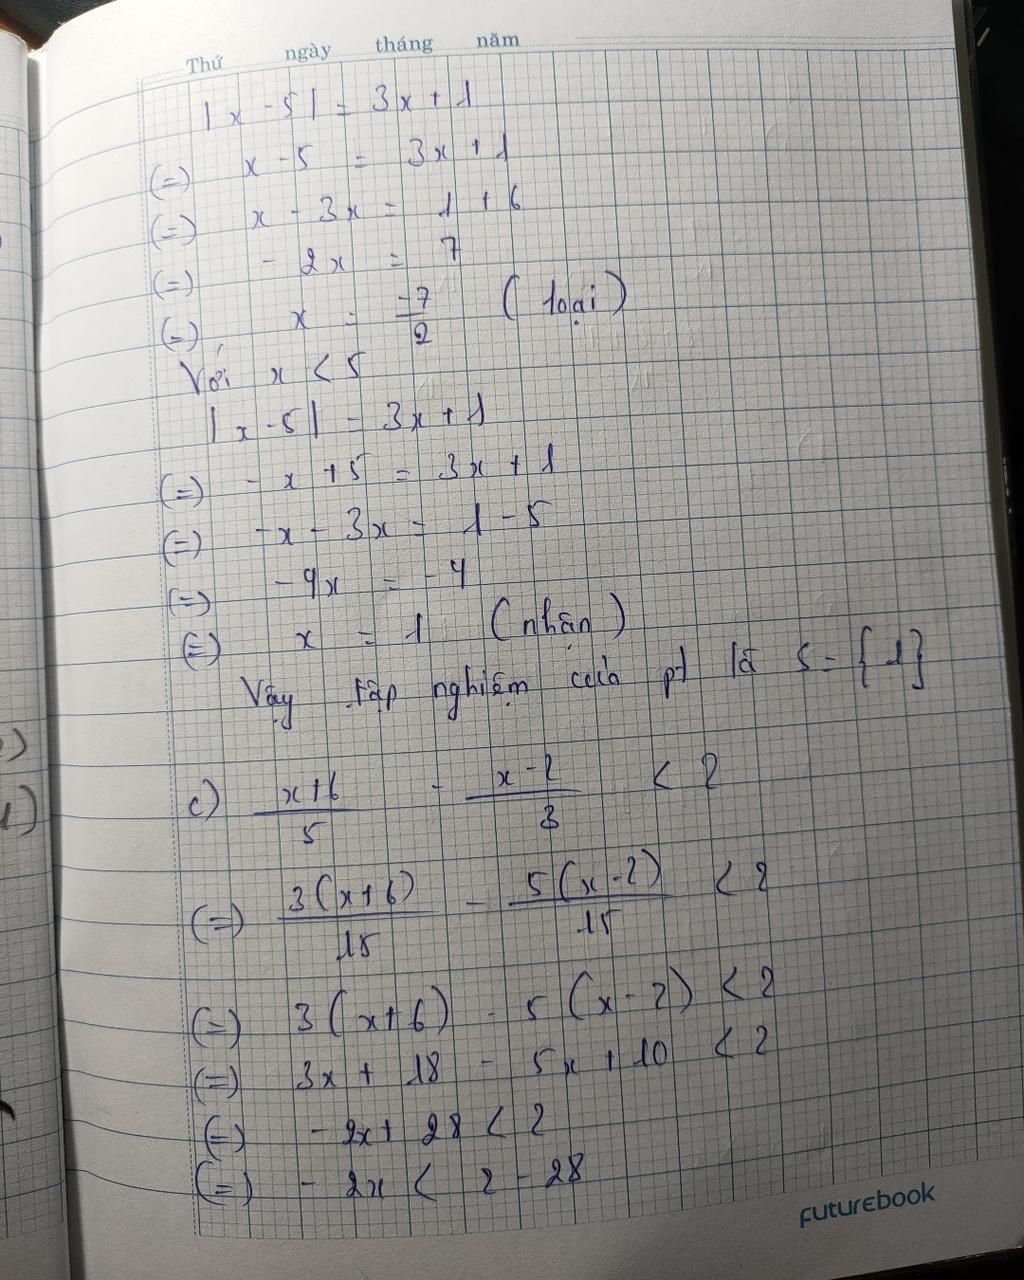 Thứ ngày tháng năm
|x - 5| = 3x + 1
(=) x - 5 = 3x + 1
(=) x - 3x = 1 + 6
(=) - 2x = 7
(=) x = -7/2 (loại)
Với x < 5
|x - 5| = 3x + 1
(=) - x + 5 = 3x + 1
(=) -x - 3x = 1 - 5
(=) - 4x = - 4
(=) x = 1 (nhận)
Vậy tập nghiệm của pt là S = {1}
c) x+6/5 - x-2/3 < 2
(=) 3(x+6)/15 - 5(x-2)/15 < 2
(=) 3(x+6) - 5(x-2) < 2
(=) 3x + 18 - 5x + 10 < 2
(=) - 2x + 28 < 2
(=) - 2x < 2 - 28
FUTUREBOOK